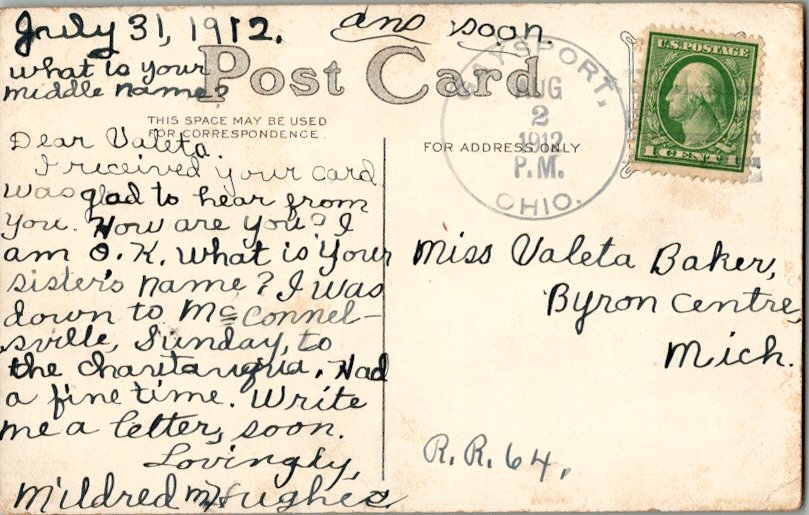 July 31, 1912.
ans soon.
what is your
middle name?
Post Card
THIS SPACE MAY BE USED
FOR CORRESPONDENCE.
FOR ADDRESS ONLY
GAYSPORT,
AUG
2
1912
P.M.
OHIO.
U.S. POSTAGE
1 CENT 1
Dear Valeta.
I received your card
was glad to hear from
you. How are you? I
am O.K. What is your
sister's name? I was
down to McConnel-
sville, Sunday, to
the chautauqua. Had
a fine time. Write
me a letter, soon.
Lovingly,
Mildred M. Hughes.
Miss Valeta Baker,
Byron Centre,
Mich.
R.R. 64.